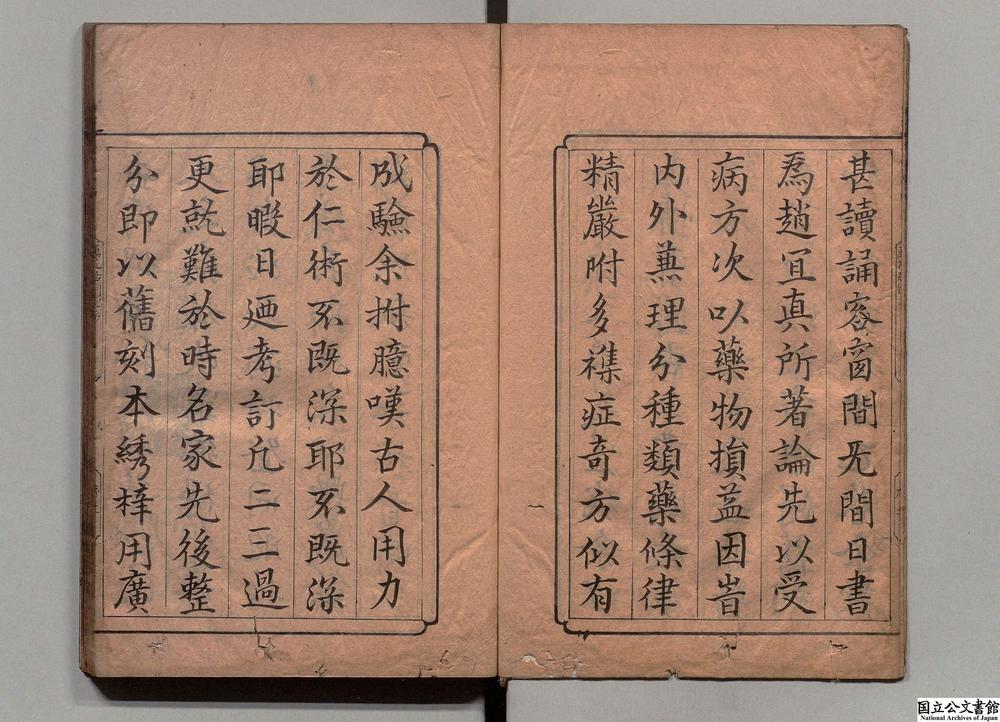 甚讀誦窓窗間旡間日書
爲趙冝真所著論先以受
病方次以藥物損益因旹
内外兼理分種類藥條律
精嚴附多襍症奇方似有
一
成驗余拊臆嘆古人用力
於仁術不既深耶不既深
耶暇日迺考訂凡二三過
更就難於時名家先後整
分即以舊刻本綉梓用廣
国立公文書館
National Archives of Japan